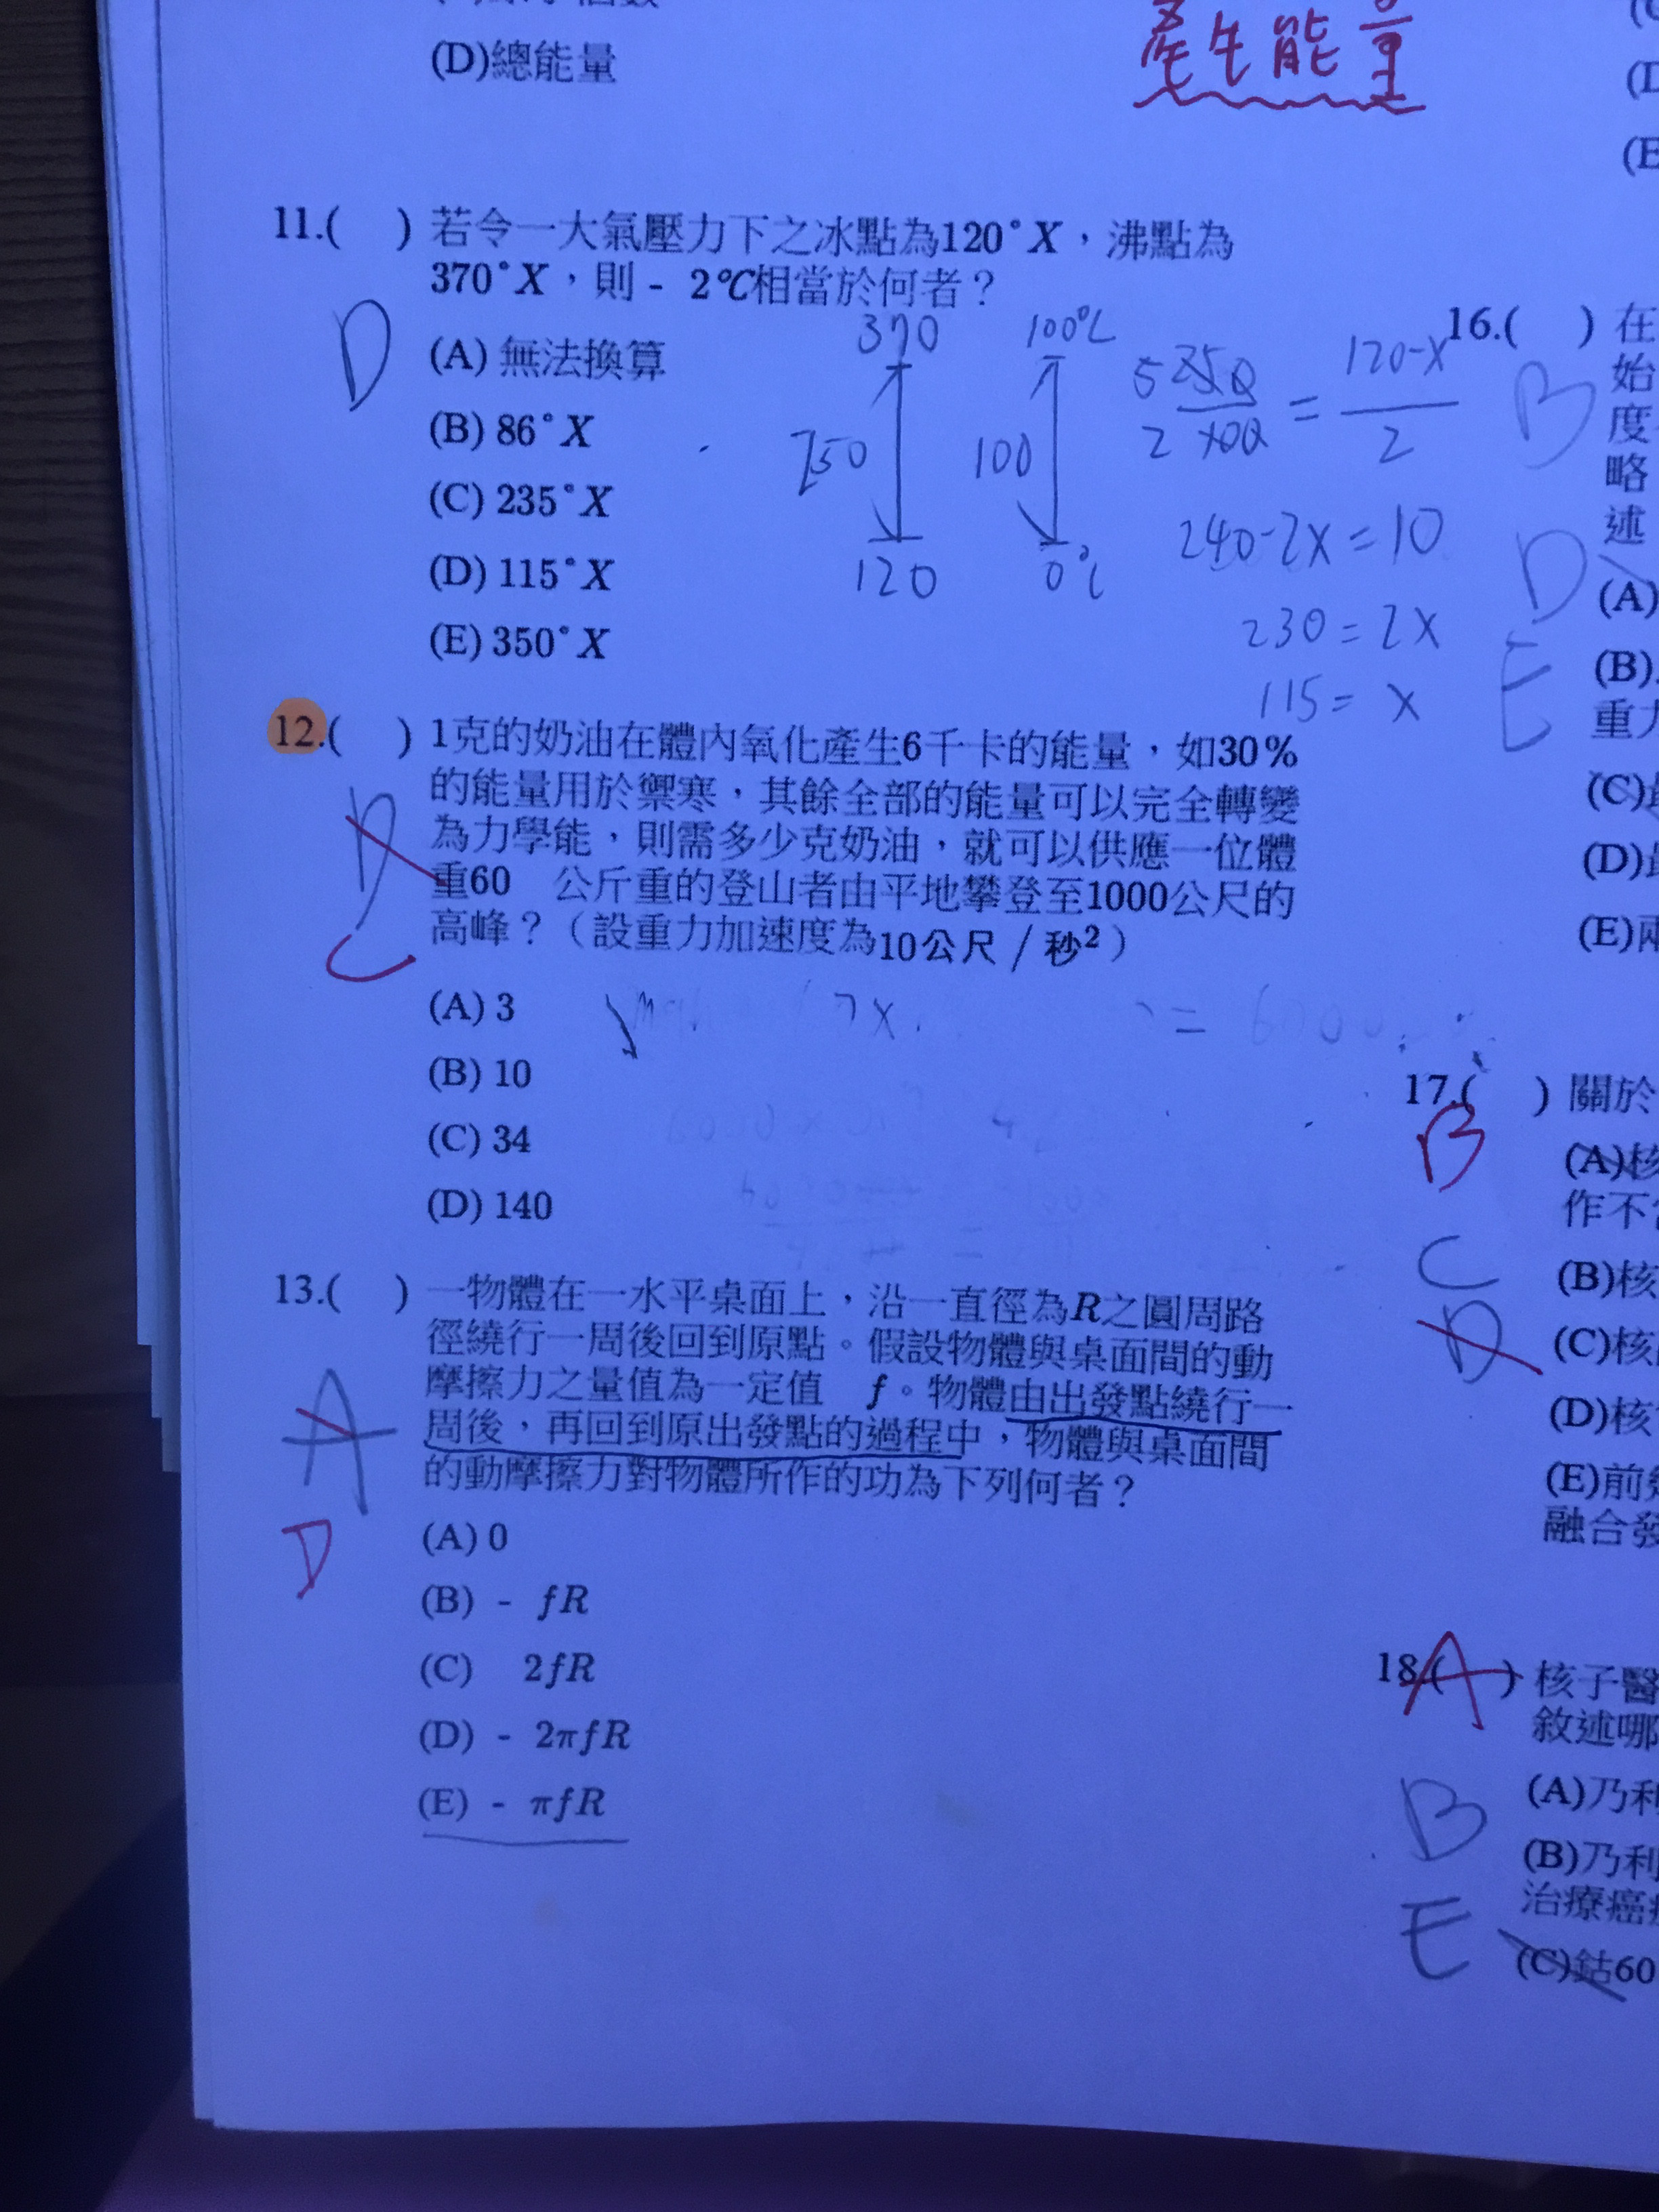 (D)總能量
產生能量
11.( ) 若令一大氣壓力下之冰點為120°X,沸點為
370°X,則 - 2℃相當於何者?
D
(A) 無法換算
(B) 86°X
(C) 235°X
(D) 115°X
(E) 350°X
370
100℃
250
100
120
0℃
5 250
2 100
=
120-X
2
240-2X=10
230=2X
115=X
12.( ) 1克的奶油在體內氧化產生6千卡的能量,如30%
的能量用於禦寒,其餘全部的能量可以完全轉變
為力學能,則需多少克奶油,就可以供應一位體
重60 公斤重的登山者由平地攀登至1000公尺的
高峰?(設重力加速度為10公尺/秒²)
D
C
(A) 3
(B) 10
(C) 34
(D) 140
13.( ) 一物體在一水平桌面上,沿一直徑為R之圓周路
徑繞行一周後回到原點。假設物體與桌面間的動
摩擦力之量值為一定值 f。物體由出發點繞行一
周後,再回到原出發點的過程中,物體與桌面間
的動摩擦力對物體所作的功為下列何者?
A
D
(A) 0
(B) - fR
(C) 2fR
(D) - 2πfR
(E) - πfR
16.( ) 在
始
度
略
述
B
D
E
(A)
(B)
重力
(C)
(D)
(E)兩
17.( ) 關於
B
C
D
(A)核
作不
(B)核
(C)核
(D)核
(E)前
融合發
18.( ) 核子醫
A
敘述哪
B
E
(A)乃利
(B)乃利
治療癌
(C)鈷60